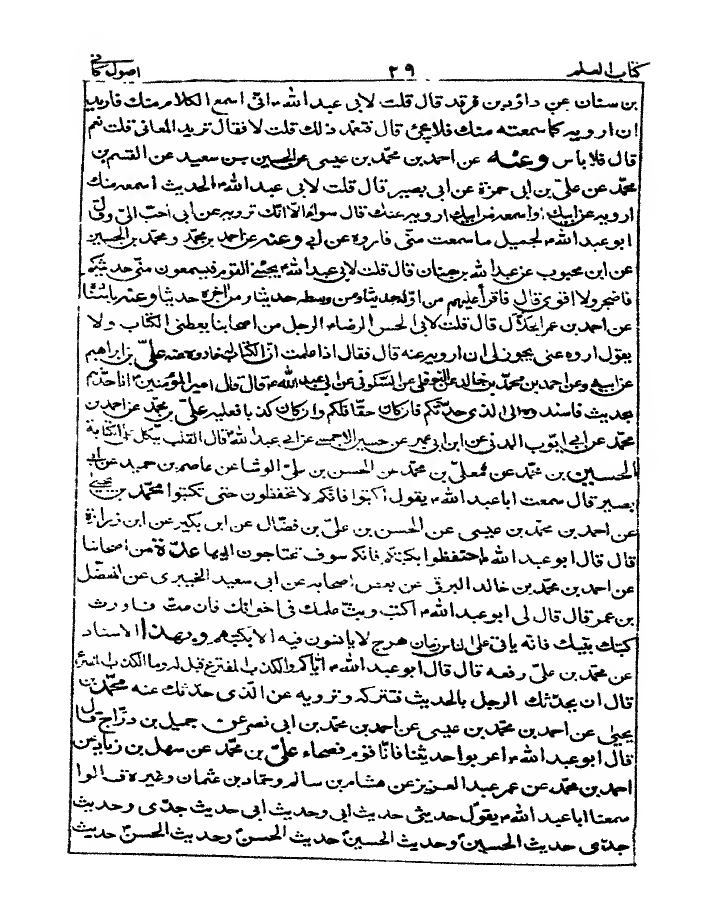 كتاب العلم ٢٩ اصول كافى
بن سنان عن داؤد بن فرقد قال قلت لابى عبد الله ء انى اسمع الكلام منك فاريد
ان ارويه كما سمعته منك فلا يجئ قال فتعمد ذلك قلت لا فقال تريد المعانى قلت نعم
قال فلا باس وعنه عن احمد بن محمد بن عيسى عن الحسين بن سعيد عن القسم بن
محمد عن على بن ابى حمزة عن ابى بصير قال قلت لابى عبد الله ء الحديث اسمعه منك
ارويه عن ابيك او اسمعه من ابيك ارويه عنك قال سواء الا انك ترويه عن ابى احب الى وقال
ابو عبد الله ء لجميل ما سمعت منى فاروه عن ابى وعنه عن احمد بن محمد ومحمد بن الحسين
عن ابن محبوب عن عبد الله بن سنان قال قلت لابى عبد الله ء يجيئنى القوم فيسمعون منى حديثكم
فاضجر ولا اقوى قال فاقرأ عليهم من اوله حديثا ومن وسطه حديثا ومن اخره حديثا وعنه باسناده
عن احمد بن عمر الحلال قال قلت لابى الحسن الرضاء الرجل من اصحابنا يعطنى الكتاب ولا
يقول اروه عنى يجوز لى ان ارويه عنه قال فقال اذا علمت ان الكتاب له فاروه عنه على بن ابراهيم
عن ابيه وعن احمد بن محمد بن خالد عن النوفلى عن السكونى عن ابى عبد الله ء قال قال امير المؤمنين اذا حدثتم
بحديث فاسندوه الى الذى حدثكم فان كان حقا فلكم وان كان كذبا فعليه على بن محمد عن احمد بن
محمد عن ابى ايوب المدنى عن ابن ابى عمير عن حسين الاحمسى عن ابى عبد الله ء قال القلب يتكل على الكتابة
الحسين بن محمد عن معلى بن محمد عن الحسن بن على الوشا عن عاصم بن حميد عن ابى
بصير قال سمعت ابا عبد الله ء يقول اكتبوا فانكم لا تحفظون حتى تكتبوا محمد بن يحيى
عن احمد بن محمد بن عيسى عن الحسن بن على بن فضال عن ابن بكير عن ابن زرارة
قال قال ابو عبد الله ء احتفظوا بكتبكم فانكم سوف تحتاجون اليها عدة من اصحابنا
عن احمد بن محمد بن خالد البرقى عن بعض اصحابه عن ابى سعيد الخيبرى عن المفضل
بن عمر قال قال لى ابو عبد الله ء اكتب وبث علمك فى اخوانك فان مت فاورث
كتبك بنيك فانه ياتى على الناس زمان هرج لا يانسون فيه الا بكتبهم وبهذا الاسناد
عن محمد بن على رفعه قال قال ابو عبد الله ء اياكم والكذب المفترع قيل له وما الكذب المفترع
قال ان يحدثك الرجل بالحديث فتتركه وترويه عن الذى حدثك عنه محمد بن
يحيى عن احمد بن محمد بن عيسى عن احمد بن محمد بن ابى نصر عن جميل بن دراج قال
قال ابو عبد الله ء اعربوا حديثنا فانا قوم فصحاء على بن محمد عن سهل بن زياد عن
احمد بن محمد عن عمر بن عبد العزيز عن هشام بن سالم وحماد بن عثمان وغيره قالوا
سمعنا ابا عبد الله ء يقول حديثى حديث ابى وحديث ابى حديث جدى وحديث
جدى حديث الحسين وحديث الحسين حديث الحسن وحديث الحسن حديث